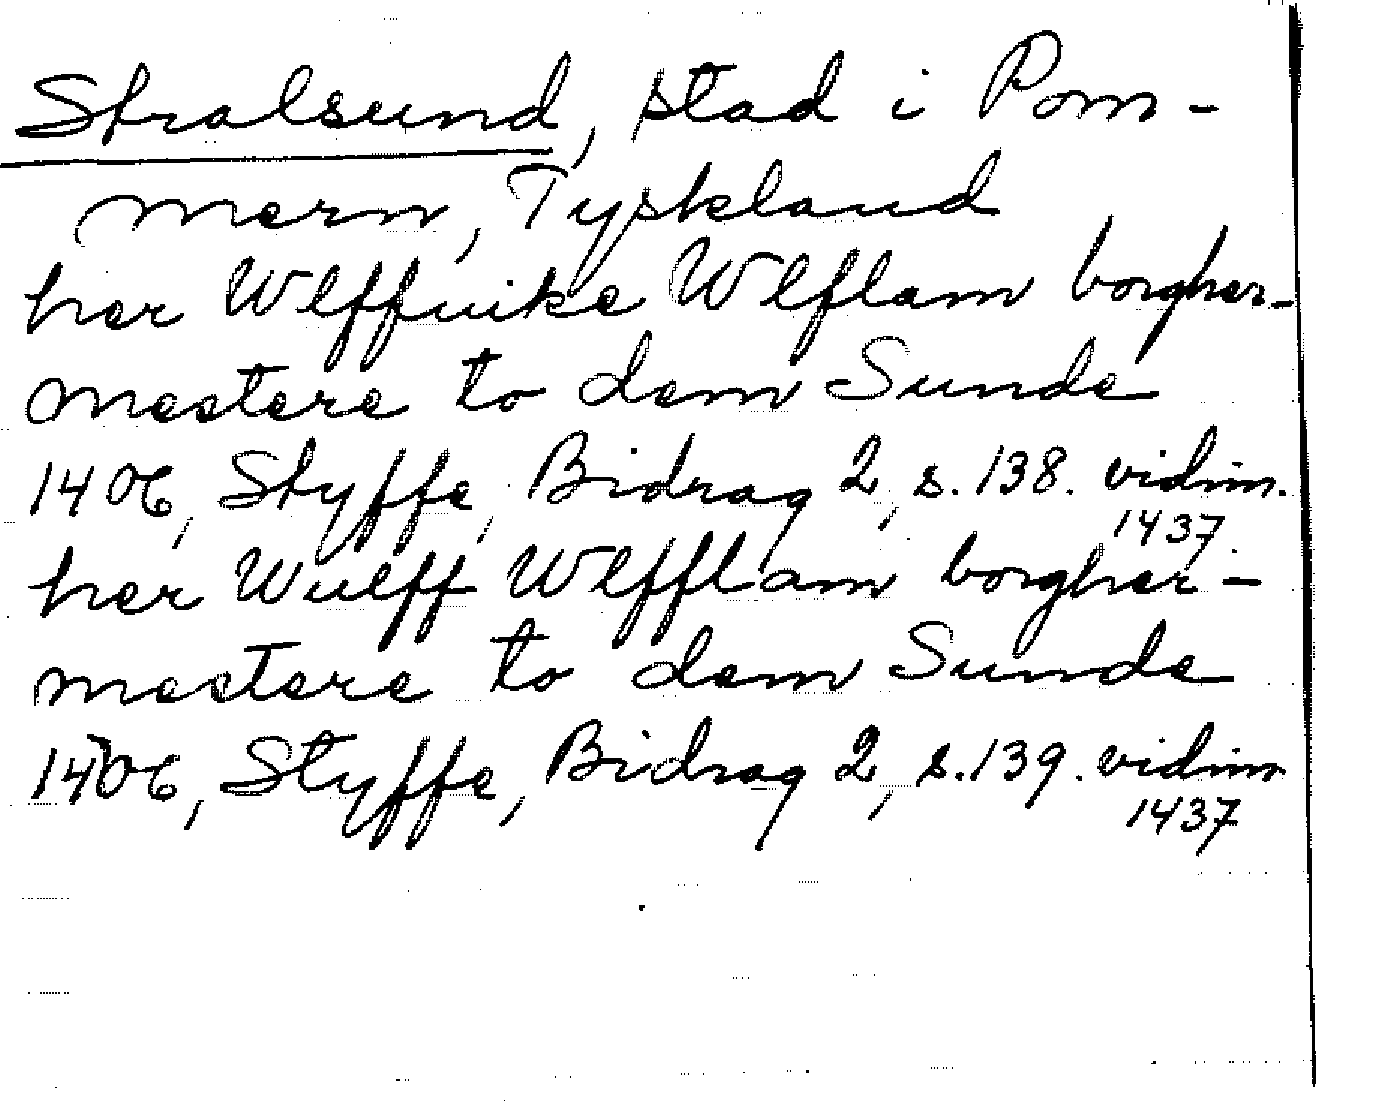 Stralsund, stad i Pom-
mern, Tyskland
her Wlffuike Wlflam borgher-
mestere to dem Sunde
1406, Styffe, Bidrag 2, s. 138. vidim.
1437.
her Wulff Wlfflam borgher-
mestere to dem Sunde
1406, Styffe, Bidrag 2, s. 139. vidim
1437